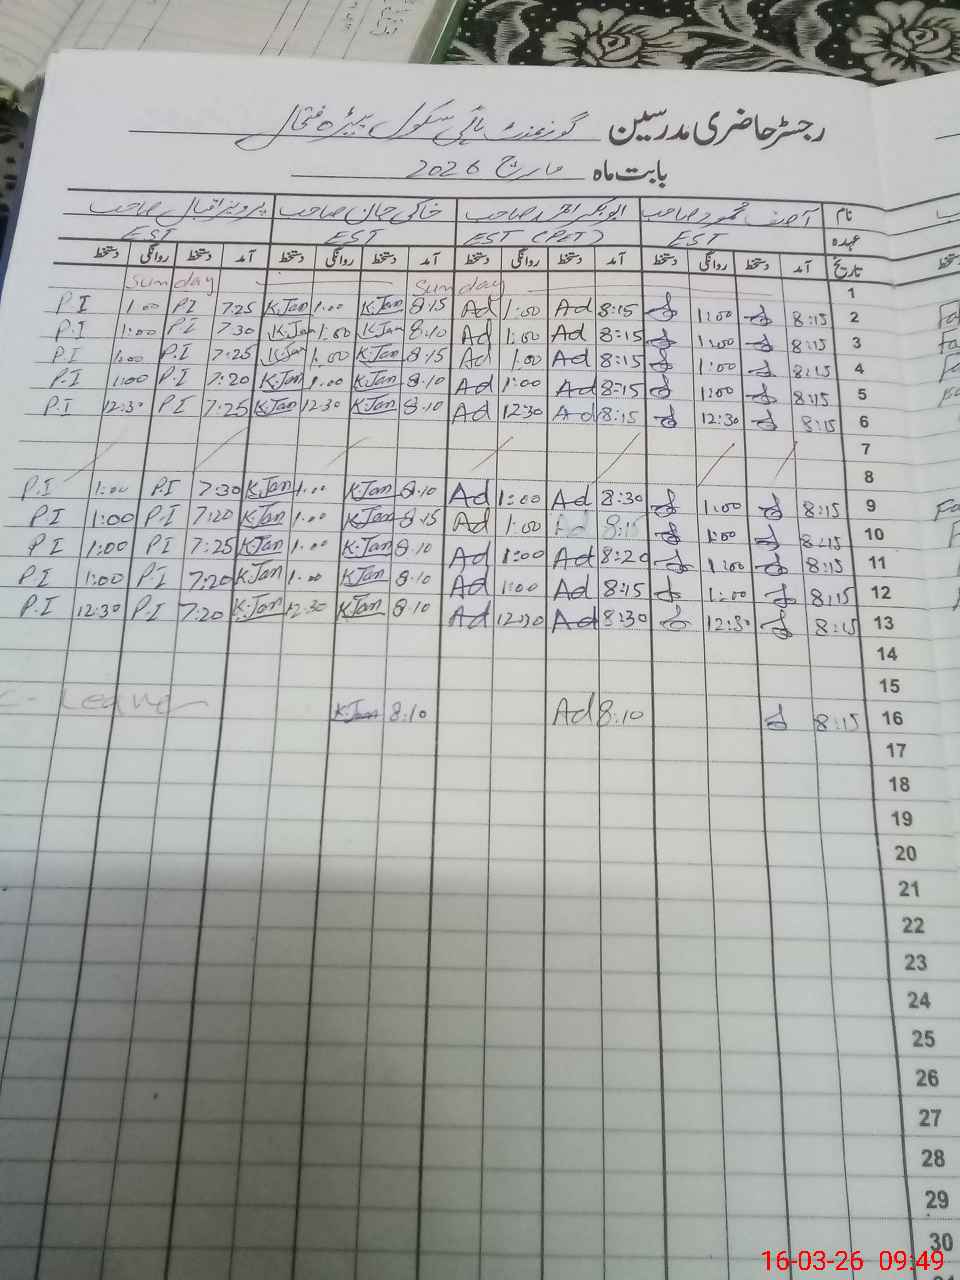 رجسٹر حاضری مدرسین گورنمنٹ ہائی سکول
بابت ماہ مارچ 2026
نام آصف محمود صاحب ابوبکر احمد صاحب خاکی جان صاحب پرویز اقبال صاحب
عہدہ EST EST (PET) EST EST
تاریخ آمد دستخط روانگی دستخط آمد دستخط روانگی دستخط آمد دستخط روانگی دستخط آمد دستخط روانگی دستخط
1 Sunday Sunday
P.I 1:00 P.I 7:25 K.Jan 1:00 K.Jan 8:15 Ad 1:00 Ad 8:15 1:00 8:15 2
P.I 1:00 P.I 7:30 K.Jan 1:00 K.Jan 8:10 Ad 1:00 Ad 8:15 1:00 8:15 3
P.I 1:00 P.I 7:25 K.Jan 1:00 K.Jan 8:15 Ad 1:00 Ad 8:15 1:00 8:15 4
P.I 1:00 P.I 7:20 K.Jan 1:00 K.Jan 8:10 Ad 1:00 Ad 8:15 1:00 8:15 5
P.I 12:30 P.I 7:25 K.Jan 12:30 K.Jan 8:10 Ad 12:30 Ad 8:15 12:30 8:15 6
7
8
P.I 1:00 P.I 7:30 K.Jan 1:00 K.Jan 8:10 Ad 1:00 Ad 8:30 1:00 8:15 9
P.I 1:00 P.I 7:20 K.Jan 1:00 K.Jan 8:15 Ad 1:00 Ad 8:15 1:00 8:15 10
P.I 1:00 P.I 7:25 K.Jan 1:00 K.Jan 8:10 Ad 1:00 Ad 8:20 1:00 8:15 11
P.I 1:00 P.I 7:20 K.Jan 1:00 K.Jan 8:10 Ad 1:00 Ad 8:15 1:00 8:15 12
P.I 12:30 P.I 7:20 K.Jan 12:30 K.Jan 8:10 Ad 12:30 Ad 8:30 12:30 8:15 13
14
15
C-Leave K.Jan 8:10 Ad 8:10 8:15 16
17
18
19
20
21
22
23
24
25
26
27
28
29
30
16-03-26 09:49